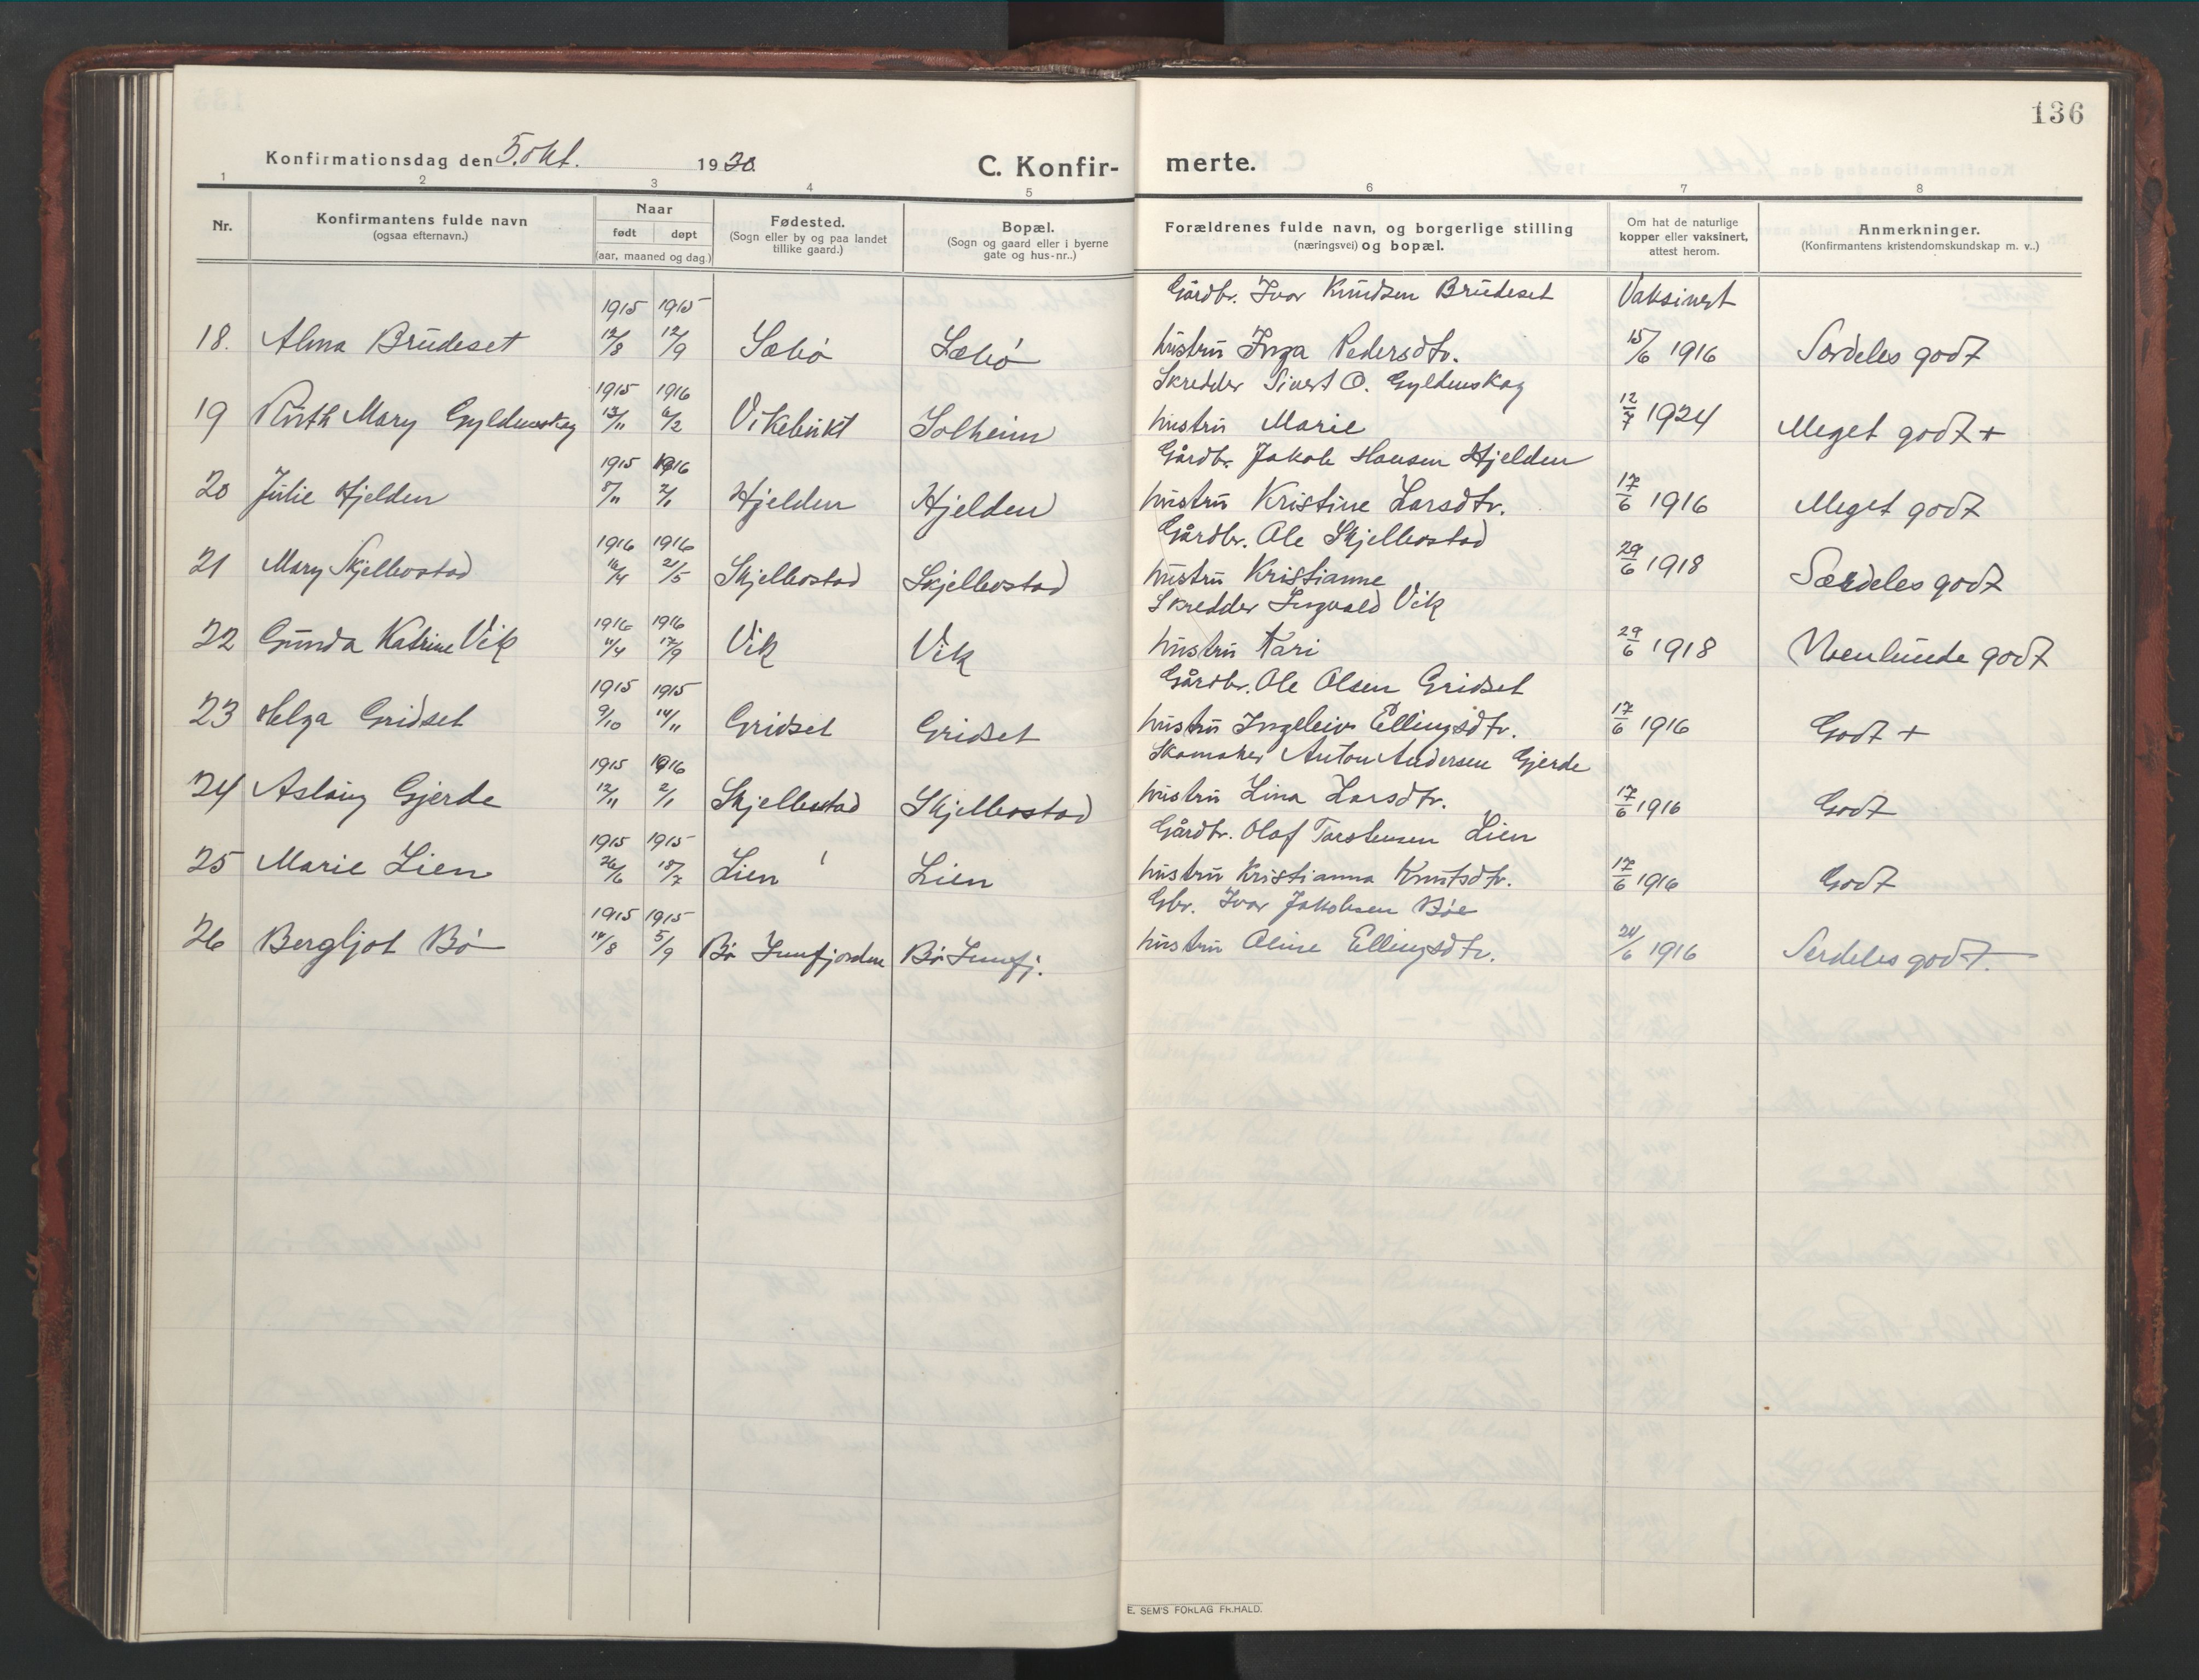 136
Konfirmationsdag den 5. okt. 1930.
C. Konfir- merte.
1 2 3 4 5 6 7 8
Nr. Konfirmantens fulde navn (ogsaa efternavn.) Naar født døpt (aar, maaned og dag.) Fødested. (Sogn eller by og paa landet tillike gaard.) Bopæl. (Sogn og gaard eller i byerne gate og hus-nr..) Forældrenes fulde navn, og borgerlige stilling (næringsvei) og bopæl. Om hat de naturlige kopper eller vaksinert, attest herom. Anmerkninger. (Konfirmantens kristendomskundskap m. v..)
1915 1915 Gårdbr. Ivar Knudsen Brudeset Vaksinert
18. Alma Brudeset 12/8 12/9 Sæbø Sæbø hustru Inga Pedersdtr. 15/6 1916 Særdeles godt
1915 1916 Skredder Sivert O. Gyldenskog
19 Ruth Mary Gyldenskog 13/11 6/2 Vikebukt Solheim hustru Marie 12/7 1924 Meget godt +
1915 1916 Gårdbr. Jakob Hansen Hjelden
20 Julie Hjelden 8/11 2/1 Hjelden Hjelden hustru Kristine Larsdtr. 17/6 1916 Meget godt
1916 1916 Gårdbr. Ole Skjelbostad
21 Mary Skjelbostad 16/4 21/5 Skjelbostad Skjelbostad hustru Kristianne 29/6 1918 Særdeles godt
1916 1916 Skredder Ingvald Vik
22 Gunda Katrine Vik 11/4 17/9 Vik Vik hustru Kari 29/6 1918 Noenlunde godt
1915 1915 Gårdbr. Ole Olsen Gridset
23 Helga Gridset 9/10 14/11 Gridset Gridset hustru Ingeleiv Ellingsdtr. 17/6 1916 Godt +
1915 1916 Skomaker Anton Andersen Gjerde
24 Aslaug Gjerde 12/11 2/1 Skjelbostad Skjelbostad hustru Lina Larsdtr. 17/6 1916 Godt
1915 1915 Gårdbr. Olaf Torstensen Lien
25 Marie Lien 26/6 18/7 Lien Lien hustru Kristianna Knutsdtr. 17/6 1916 Godt
1915 1915 Gbr. Ivar Jakobsen Bøe
26 Bergljot Bø 14/8 5/9 Bø Innfjorden Bø Innfj. hustru Oline Ellingsdtr. 24/6 1916 Serdeles godt.
E. SEM'S FORLAG FR.HALD.